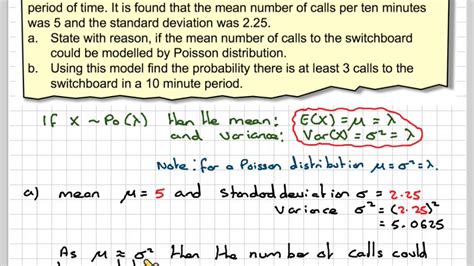 period of time. It is found that the mean number of calls per ten minutes
was 5 and the standard deviation was 2.25.
a. State with reason, if the mean number of calls to the switchboard
could be modelled by Poisson distribution.
b. Using this model find the probability there is at least 3 calls to the
switchboard in a 10 minute period.
If X ~ Po(λ) then the mean: E(X) = μ = λ
and variance: Var(X) = σ² = λ
Note: for a Poisson distribution μ = σ² = λ.
a) mean μ = 5 and standard deviation σ = 2.25
Variance σ² = (2.25)²
= 5.0625
As μ ≈ σ² then the number of calls could